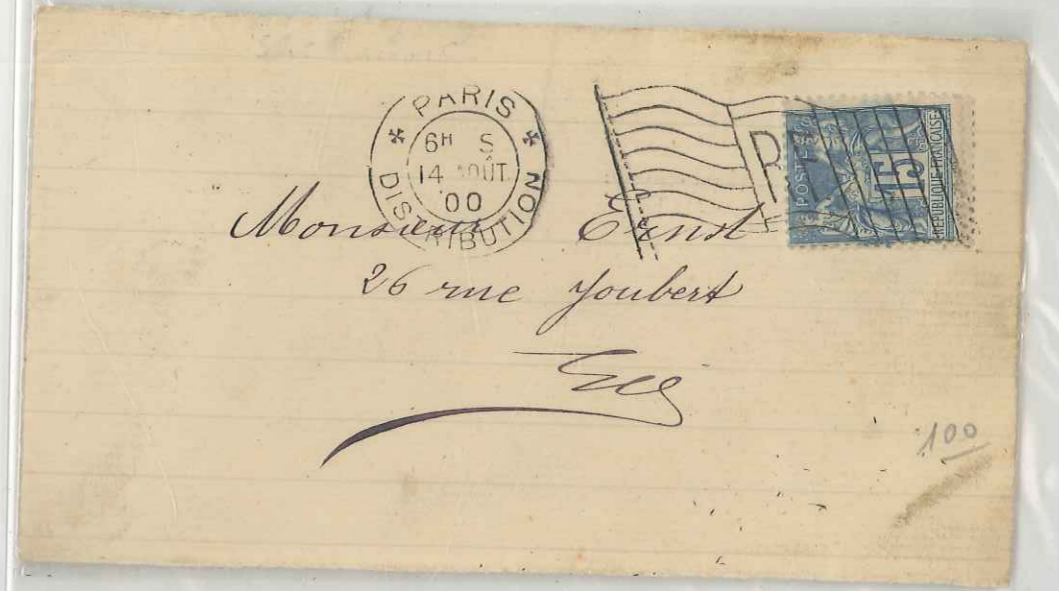 PARIS
6H S
14 AOÛT
00
DISTRIBUTION
R
POSTES
15
REPUBLIQUE FRANÇAISE
Monsieur Ernst
26 rue Joubert
100